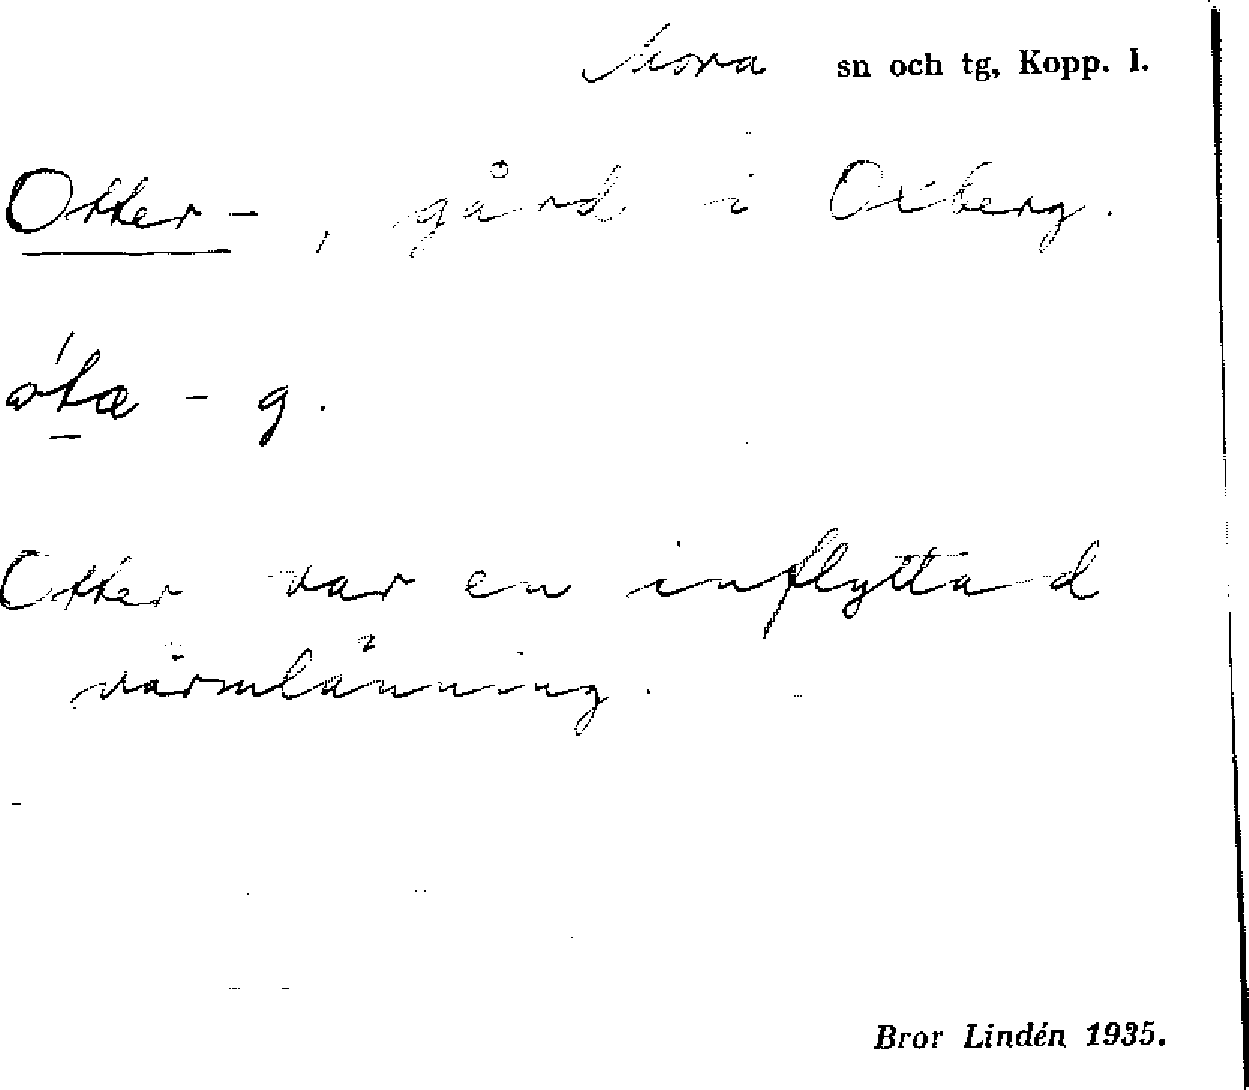 Mora sn och tg, Kopp. l.
Otter-, gård i Oxberg.
ótæ - g.
Otter var en inflyttad
värmlänning.
Bror Lindén 1935.